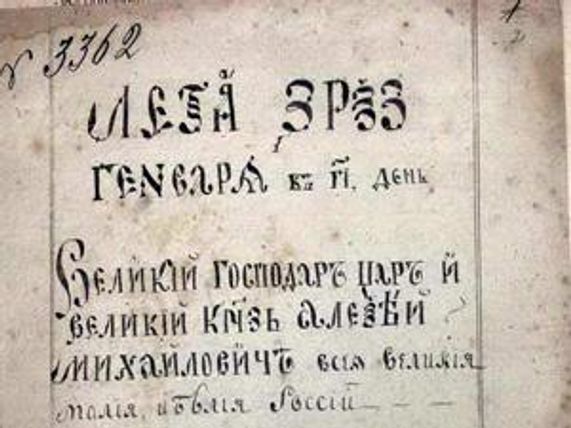 № 3362
ЛЕТА ЗРѮЗ
ГЕНВАРѦ въ гі. день
Великій господаръ царъ й
великій кнзь алеѯѣй
михайловичъ всія великія
малія, и бѣлія Россій